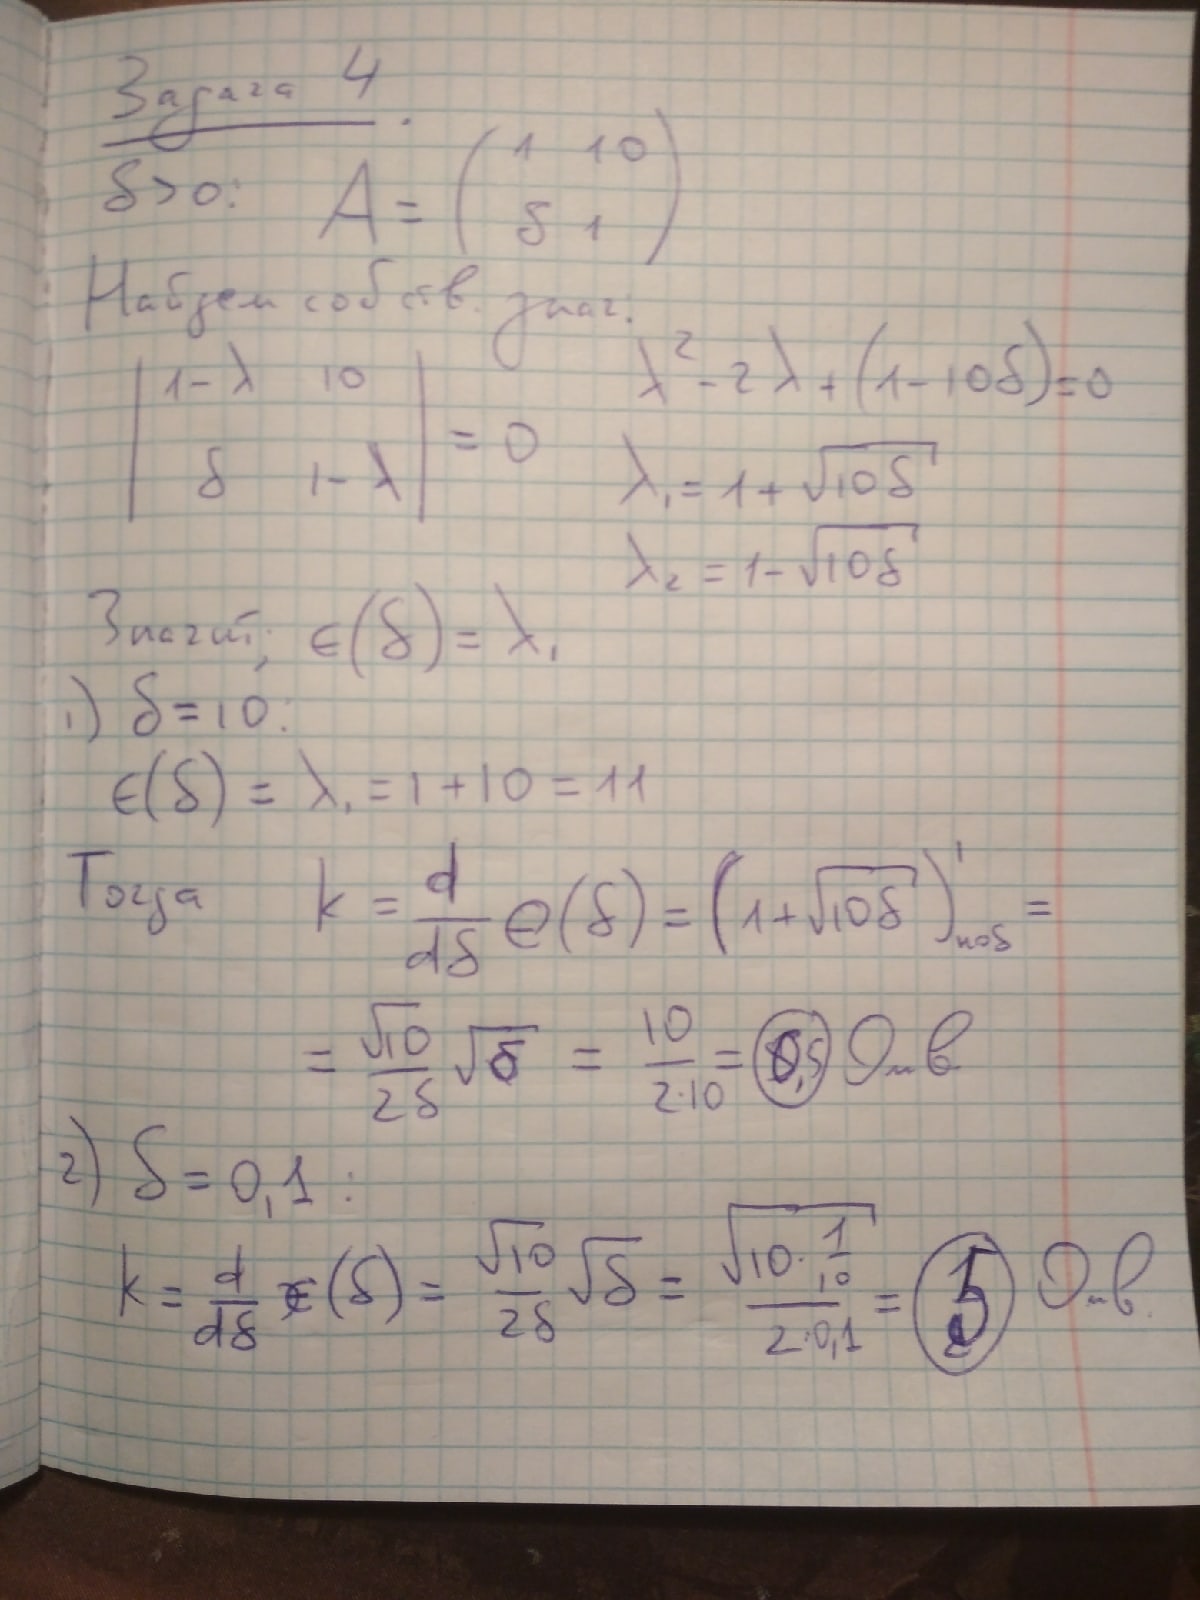 Задача 4.
δ>0: A = ( 1 10
δ 1 )
Найдем собств. знач.
| 1-λ 10
δ 1-λ | = 0
λ² - 2λ + (1-10δ) = 0
λ₁ = 1 + √10δ
λ₂ = 1 - √10δ
Значит, ϵ(δ) = λ₁
1) δ = 10:
ϵ(δ) = λ₁ = 1 + 10 = 11
Тогда k = d/dδ ϵ(δ) = (1 + √10δ)' по δ =
= √10/2δ √δ = 10/2·10 = 0,5 Отв
2) δ = 0,1 :
k = d/dδ ϵ(δ) = √10/2δ √δ = √10·1/10 / 2·0,1 = 5 Отв.